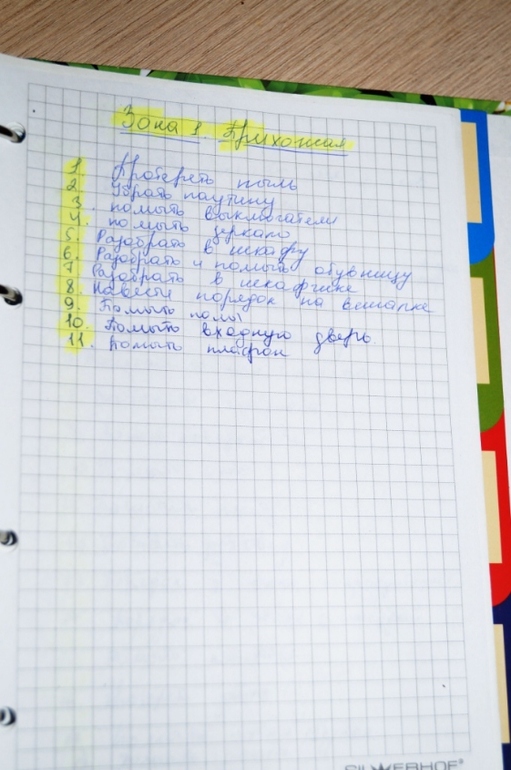 Зона 1. Прихожая
1. Протереть пыль
2. Убрать паутину
3. помыть выключатели
4. помыть зеркало
5. Разобрать в шкафу
6. Разобрать и помыть обувницу
7. Разобрать в шкафчике
8. Навести порядок на вешалке
9. Помыть полы
10. Помыть входную дверь
11. Помыть плафон
SILWERHOF®